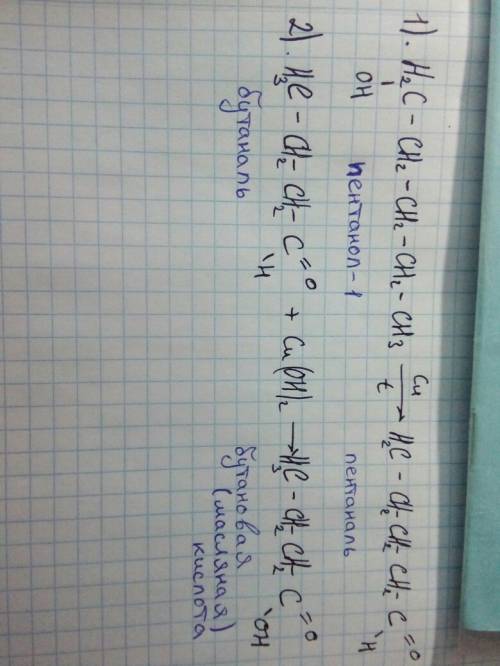 Cu
1). H₂C – CH₂ – CH₂ – CH₂ – CH₃ ⟶ H₂C – CH₂ – CH₂ – CH₂ – C = O
OH t H
пентанол-1 пентаналь
2). H₃C – CH₂ – CH₂ – C = O + Cu(OH)₂ ⟶ H₃C – CH₂ – CH₂ – C = O
H OH
бутаналь бутановая
(масляная)
кислота